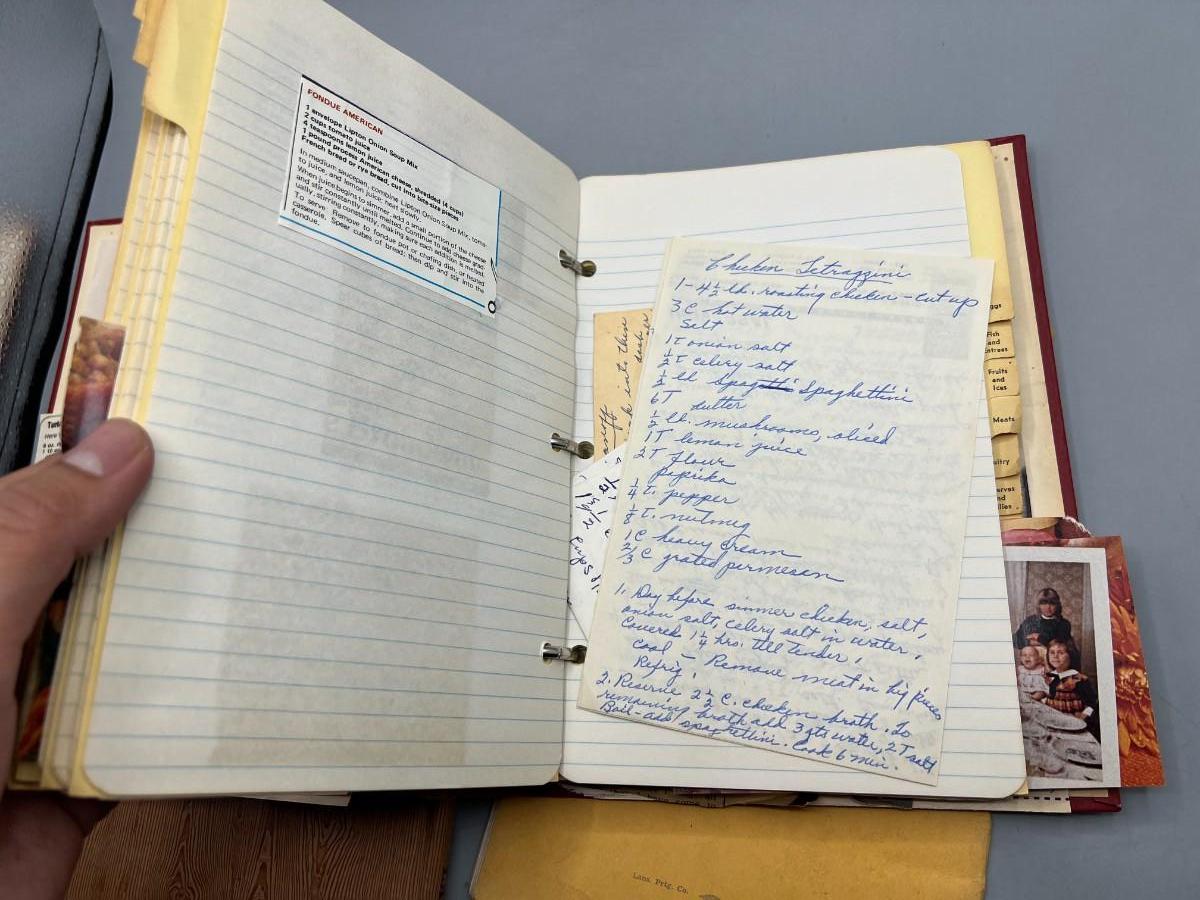 FONDUE AMERICAN
1 envelope Lipton Onion Soup Mix
2 cups tomato juice
4 teaspoons lemon juice
1 pound process American cheese, shredded (4 cups)
French bread or rye bread, cut into bite-size pieces
In medium saucepan, combine Lipton Onion Soup Mix, toma-
to juice, and lemon juice; heat slowly.
When juice begins to simmer, add a small portion of the cheese
and stir constantly until melted. Continue to add cheese grad-
ually, stirring constantly, making sure each addition is melted.
To serve: Remove to fondue pot or chafing dish, or heated
casserole. Spear cubes of bread; then dip and stir into the
fondue.
Chicken Tetrazzini
1-4½ lb. roasting chicken - cut up
3 C hot water
Salt
1T onion salt
½T celery salt
½ lb Spaghettini
6T butter
½ lb. mushrooms, sliced
1T lemon juice
2T flour
paprika
¼ t. pepper
⅛ t. nutmeg
1C heavy cream
⅔ C grated permesen
1. Day before simmer chicken, salt,
onion salt, celery salt in water,
Covered 1¼ hrs. till tender,
cool -
Refrig. Remove meat in big pieces
2. Reserve 2½ C. chicken broth. To
remaining broth add 3 qts water, 2T salt
Boil - add spaghettini. Cook 6 min.
k into thin
dash
cups
ggs
Fish
and
Entrees
Fruits
and
Ices
Meats
ultry
erves
and
llies
Lans. Prtg. Co.